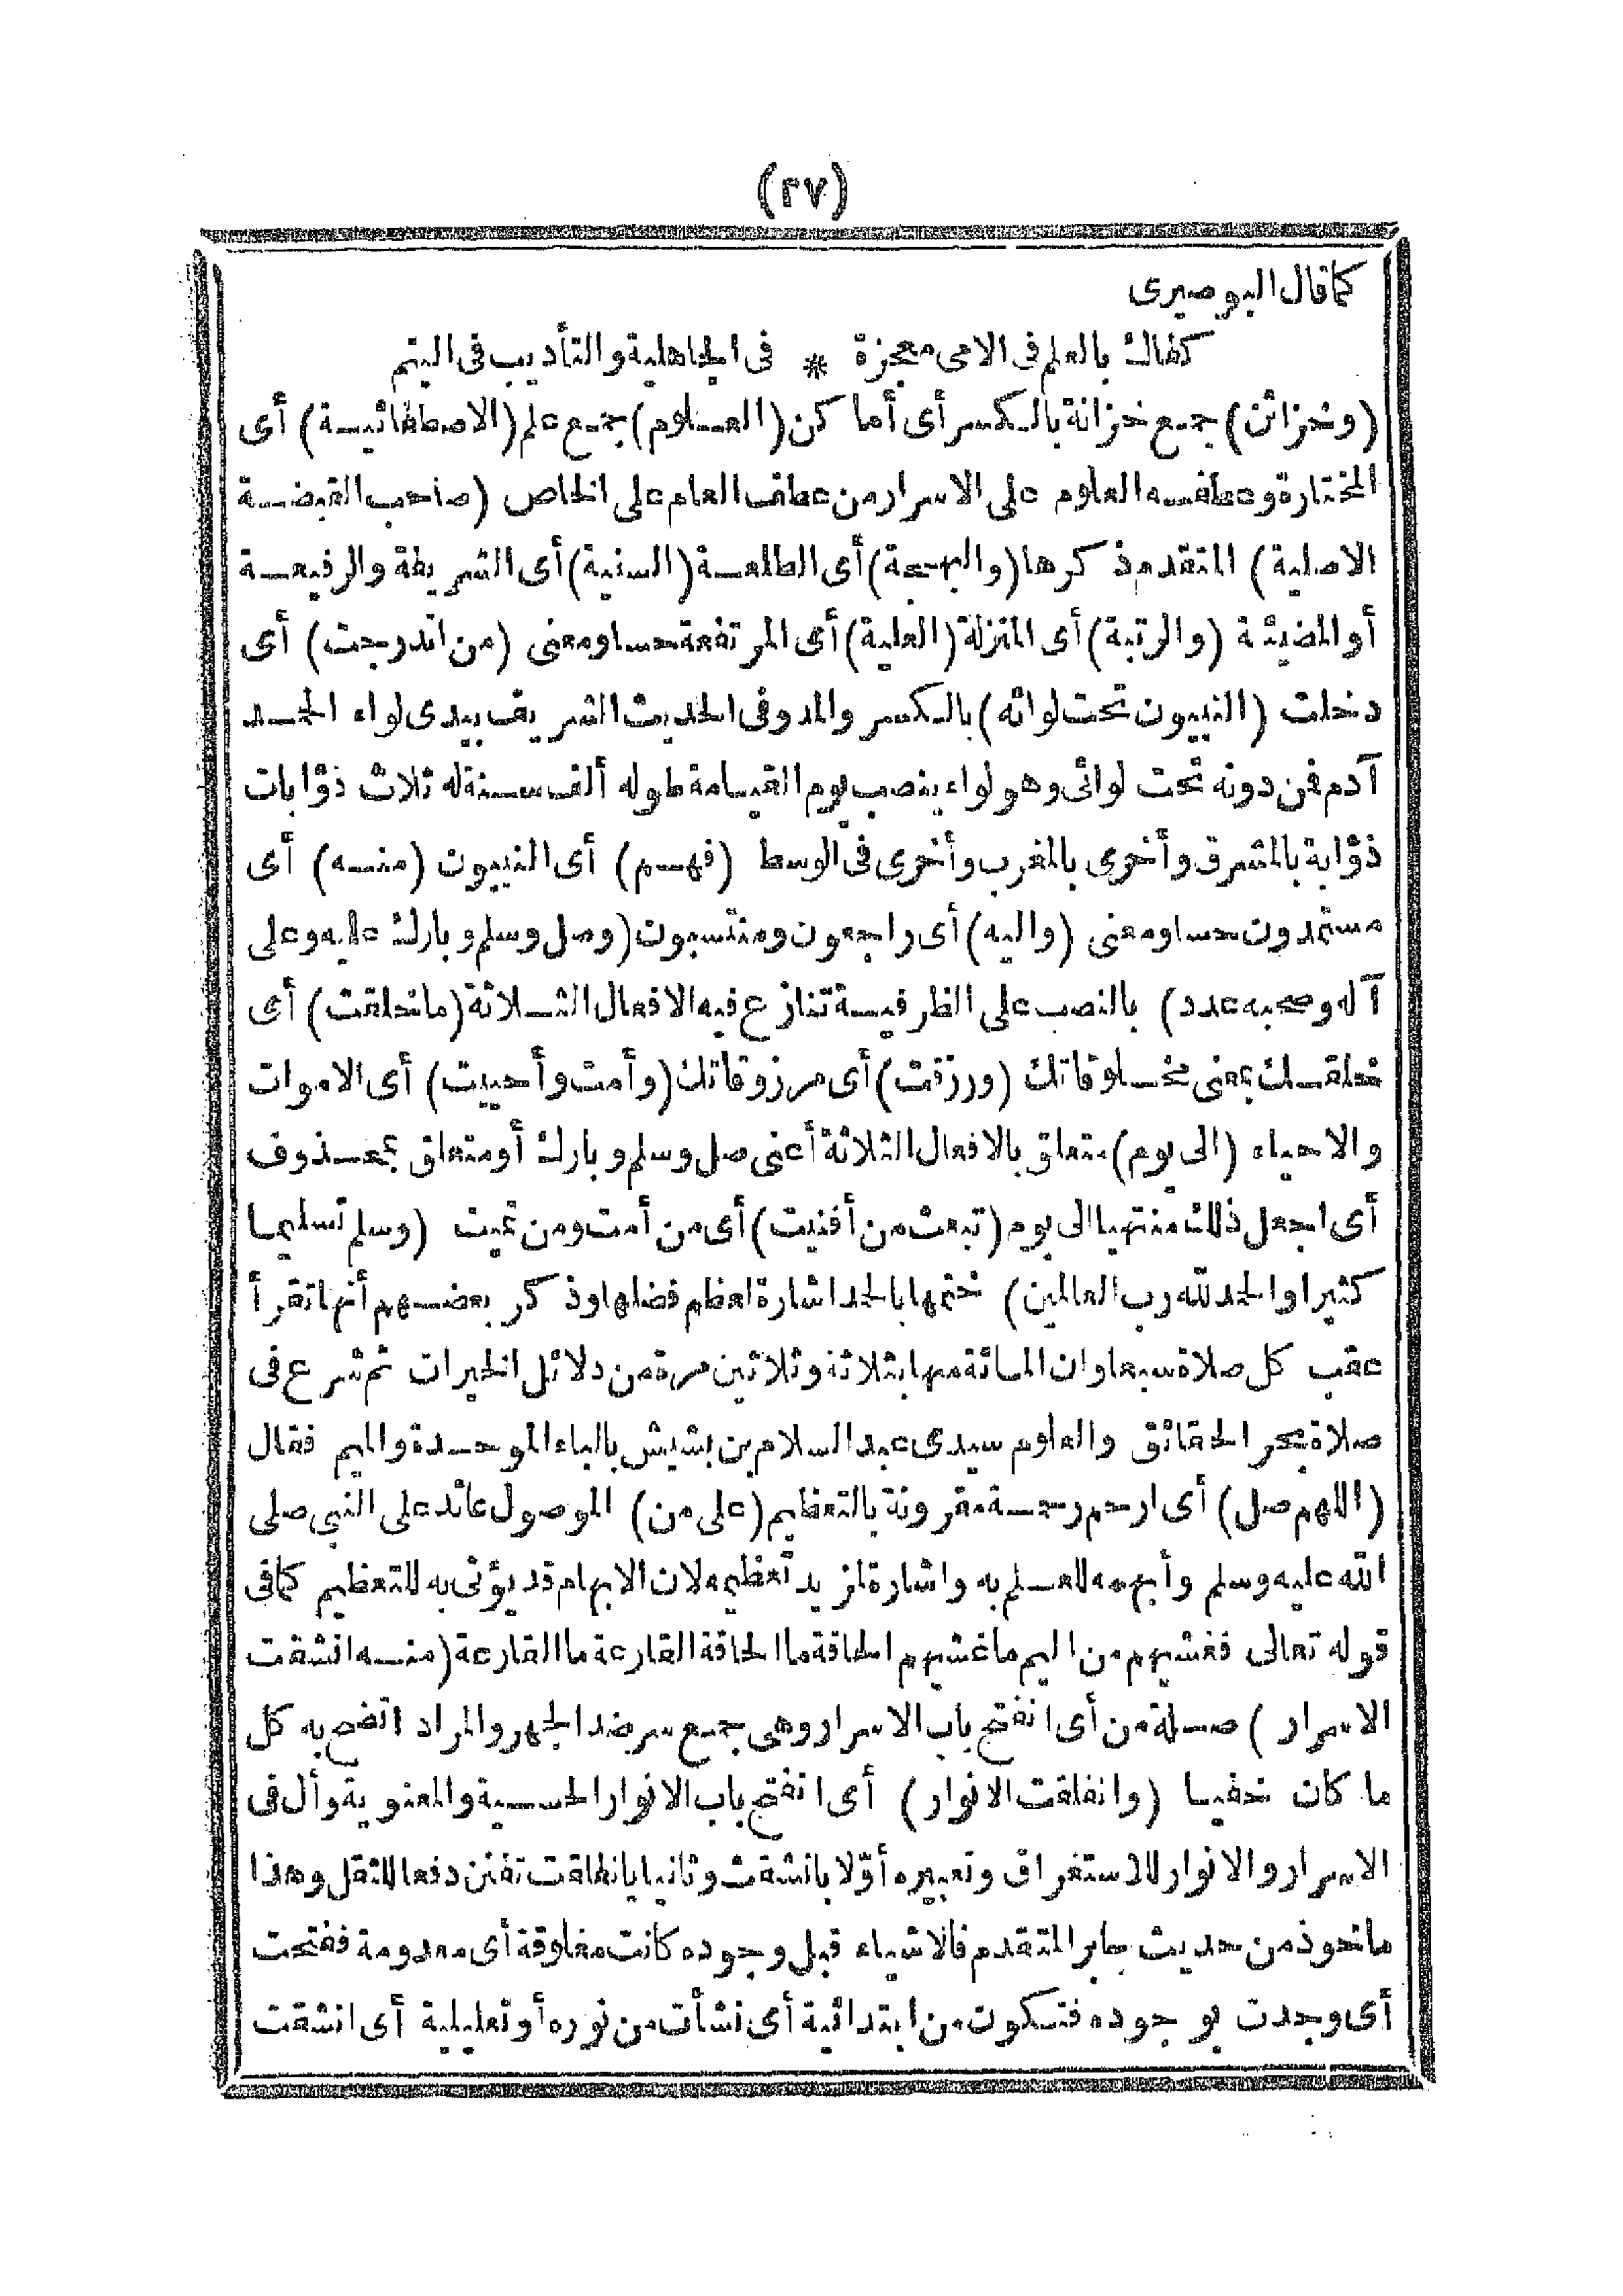 (٢٧)
كما قال البوصيرى
كفاك بالعلم فى الامى معجزة * فى الجاهلية والتأديب فى اليتم
(وخزائن) جمع خزانة بالكسر أى أماكن (العلوم) جمع علم (الاصطفائية) أى
المختارة وعطفه العلوم على الاسرار من عطف العام على الخاص (صاحب القبضة
الاصلية) المتقدم ذكرها (والبهجة) أى الطلعة (السنية) أى الشريفة والرفيعة
أو المضيئة (والرتبة) أى المنزلة (العلية) أى المرتفعة حسا ومعنى (من اندرجت) أى
دخلت (النبيون تحت لوائه) بالكسر والمد وفى الحديث الشريف بيدى لواء الحمد
آدم فمن دونه تحت لوائى وهو لواء ينصب يوم القيامة طوله ألف سنة له ثلاث ذؤابات
ذؤابة بالمشرق وأخرى بالمغرب وأخرى فى الوسط (فهم) أى النبيون (منه) أى
مستمدون حسا ومعنى (واليه) أى راجعون ومنتسبون (وصل وسلم وبارك عليه وعلى
آله وصحبه عدد) بالنصب على الظرفية تنازع فيه الافعال الثلاثة (ما خلقت) أى
خلقك بمعنى مخلوقاتك (ورزقت) أى مرزوقاتك (وأمت وأحييت) أى الاموات
والاحياء (الى يوم) متعلق بالافعال الثلاثة أعنى صل وسلم وبارك أو متعلق بمحذوف
أى اجعل ذلك منتهيا الى يوم (تبعث من أفنيت) أى من أمت ومن تميت (وسلم تسليما
كثيرا والحمد لله رب العالمين) ختمها بالحمد اشارة لعظم فضلها وذكر بعضهم أنها تقرأ
عقب كل صلاة سبعا وان المائة منها بثلاثة وثلاثين مرة من دلائل الخيرات ثم شرع فى
صلاة بحر الحقائق والعلوم سيدى عبد السلام بن بشيش بالباء الموحدة والميم فقال
(اللهم صل) أى ارحم رحمة مقرونة بالتعظيم (على من) الموصول عائد على النبى صلى
الله عليه وسلم وأبهمه للعلم به واشارة لمزيد تعظيمه لان الابهام قد يؤتى به للتعظيم كما فى
قوله تعالى فغشيهم من اليم ما غشيهم الحاقة ما الحاقة القارعة ما القارعة (منه انشقت
الاسرار) صلة من أى انفتح باب الاسرار وهى جمع سر ضد الجهر والمراد اتضح به كل
ما كان خفيا (وانفلقت الانوار) أى انفتح باب الانوار الحسية والمعنوية وأل فى
الاسرار والانوار للاستغراق وتعبيره أوّلا بانشقت وثانيا بانفلقت تفنن دفعا للثقل وهذا
مأخوذ من حديث جابر المتقدم فالاشياء قبل وجوده كانت مغلوقة أى معدومة ففتحت
أى وجدت بوجوده فتكون من ابتدائية أى نشأت من نوره أو تعليلية أى انشقت